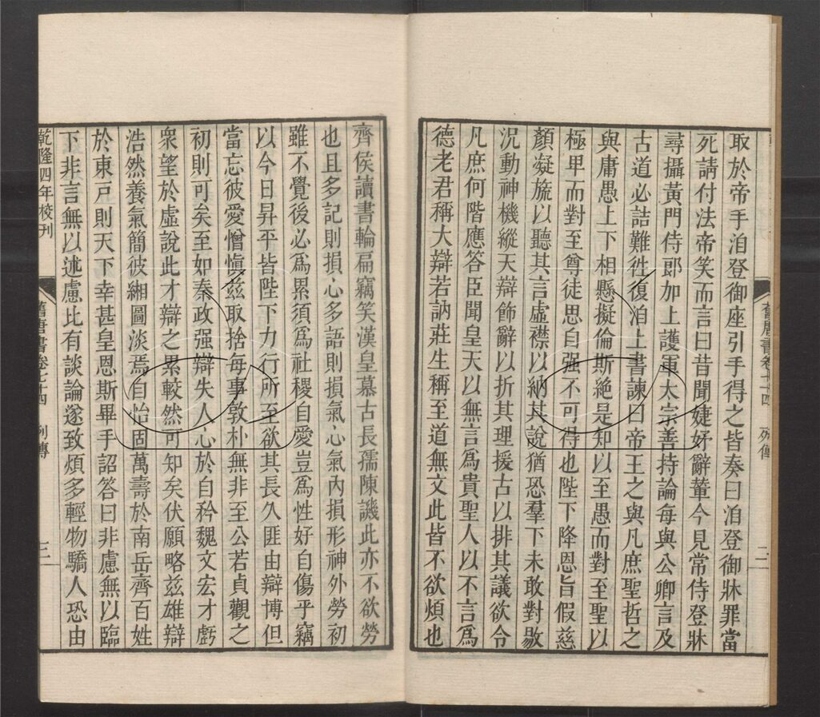 取於帝手洎登御座引手得之皆奏曰洎登御牀罪當
死請付法帝笑而言曰昔聞婕妤辭輦今見常侍登牀
尋攝黃門侍郎加上護軍太宗善持論每與公卿言及
古道必詰難徃復洎上書諫曰帝王之與凡庶聖哲之
與庸愚上下相懸擬倫斯絶是知以至愚而對至聖以
極卑而對至尊徒思自强不可得也陛下降恩旨假慈
顏凝旒以聽其言虛襟以納其說猶恐羣下未敢對敭
況動神機縱天辯飾辭以折其理援古以排其議欲令
凡庶何階應答臣聞皇天以無言爲貴聖人以不言爲
德老君稱大辯若訥莊生稱至道無文此皆不欲煩也
舊唐書卷七十四 列傳 二
齊侯讀書輪扁竊笑漢皇慕古長孺陳譏此亦不欲勞
也且多記則損心多語則損氣心氣內損形神外勞初
雖不覺後必爲累須爲社稷自愛豈爲性好自傷乎竊
以今日昇平皆陛下力行所至欲其長久匪由辯博但
當忘彼愛憎慎茲取捨每事敦朴無非至公若貞觀之
初則可矣至如秦政强辯失人心於自矜魏文宏才虧
衆望於虛說此才辯之累較然可知矣伏願略茲雄辯
浩然養氣簡彼緗圖淡焉自怡固萬壽於南岳齊百姓
於東戸則天下幸甚皇恩斯畢手詔答曰非慮無以臨
下非言無以述慮比有談論遂致煩多輕物驕人恐由
乾隆四年校刊 舊唐書卷七十四 列傳 三